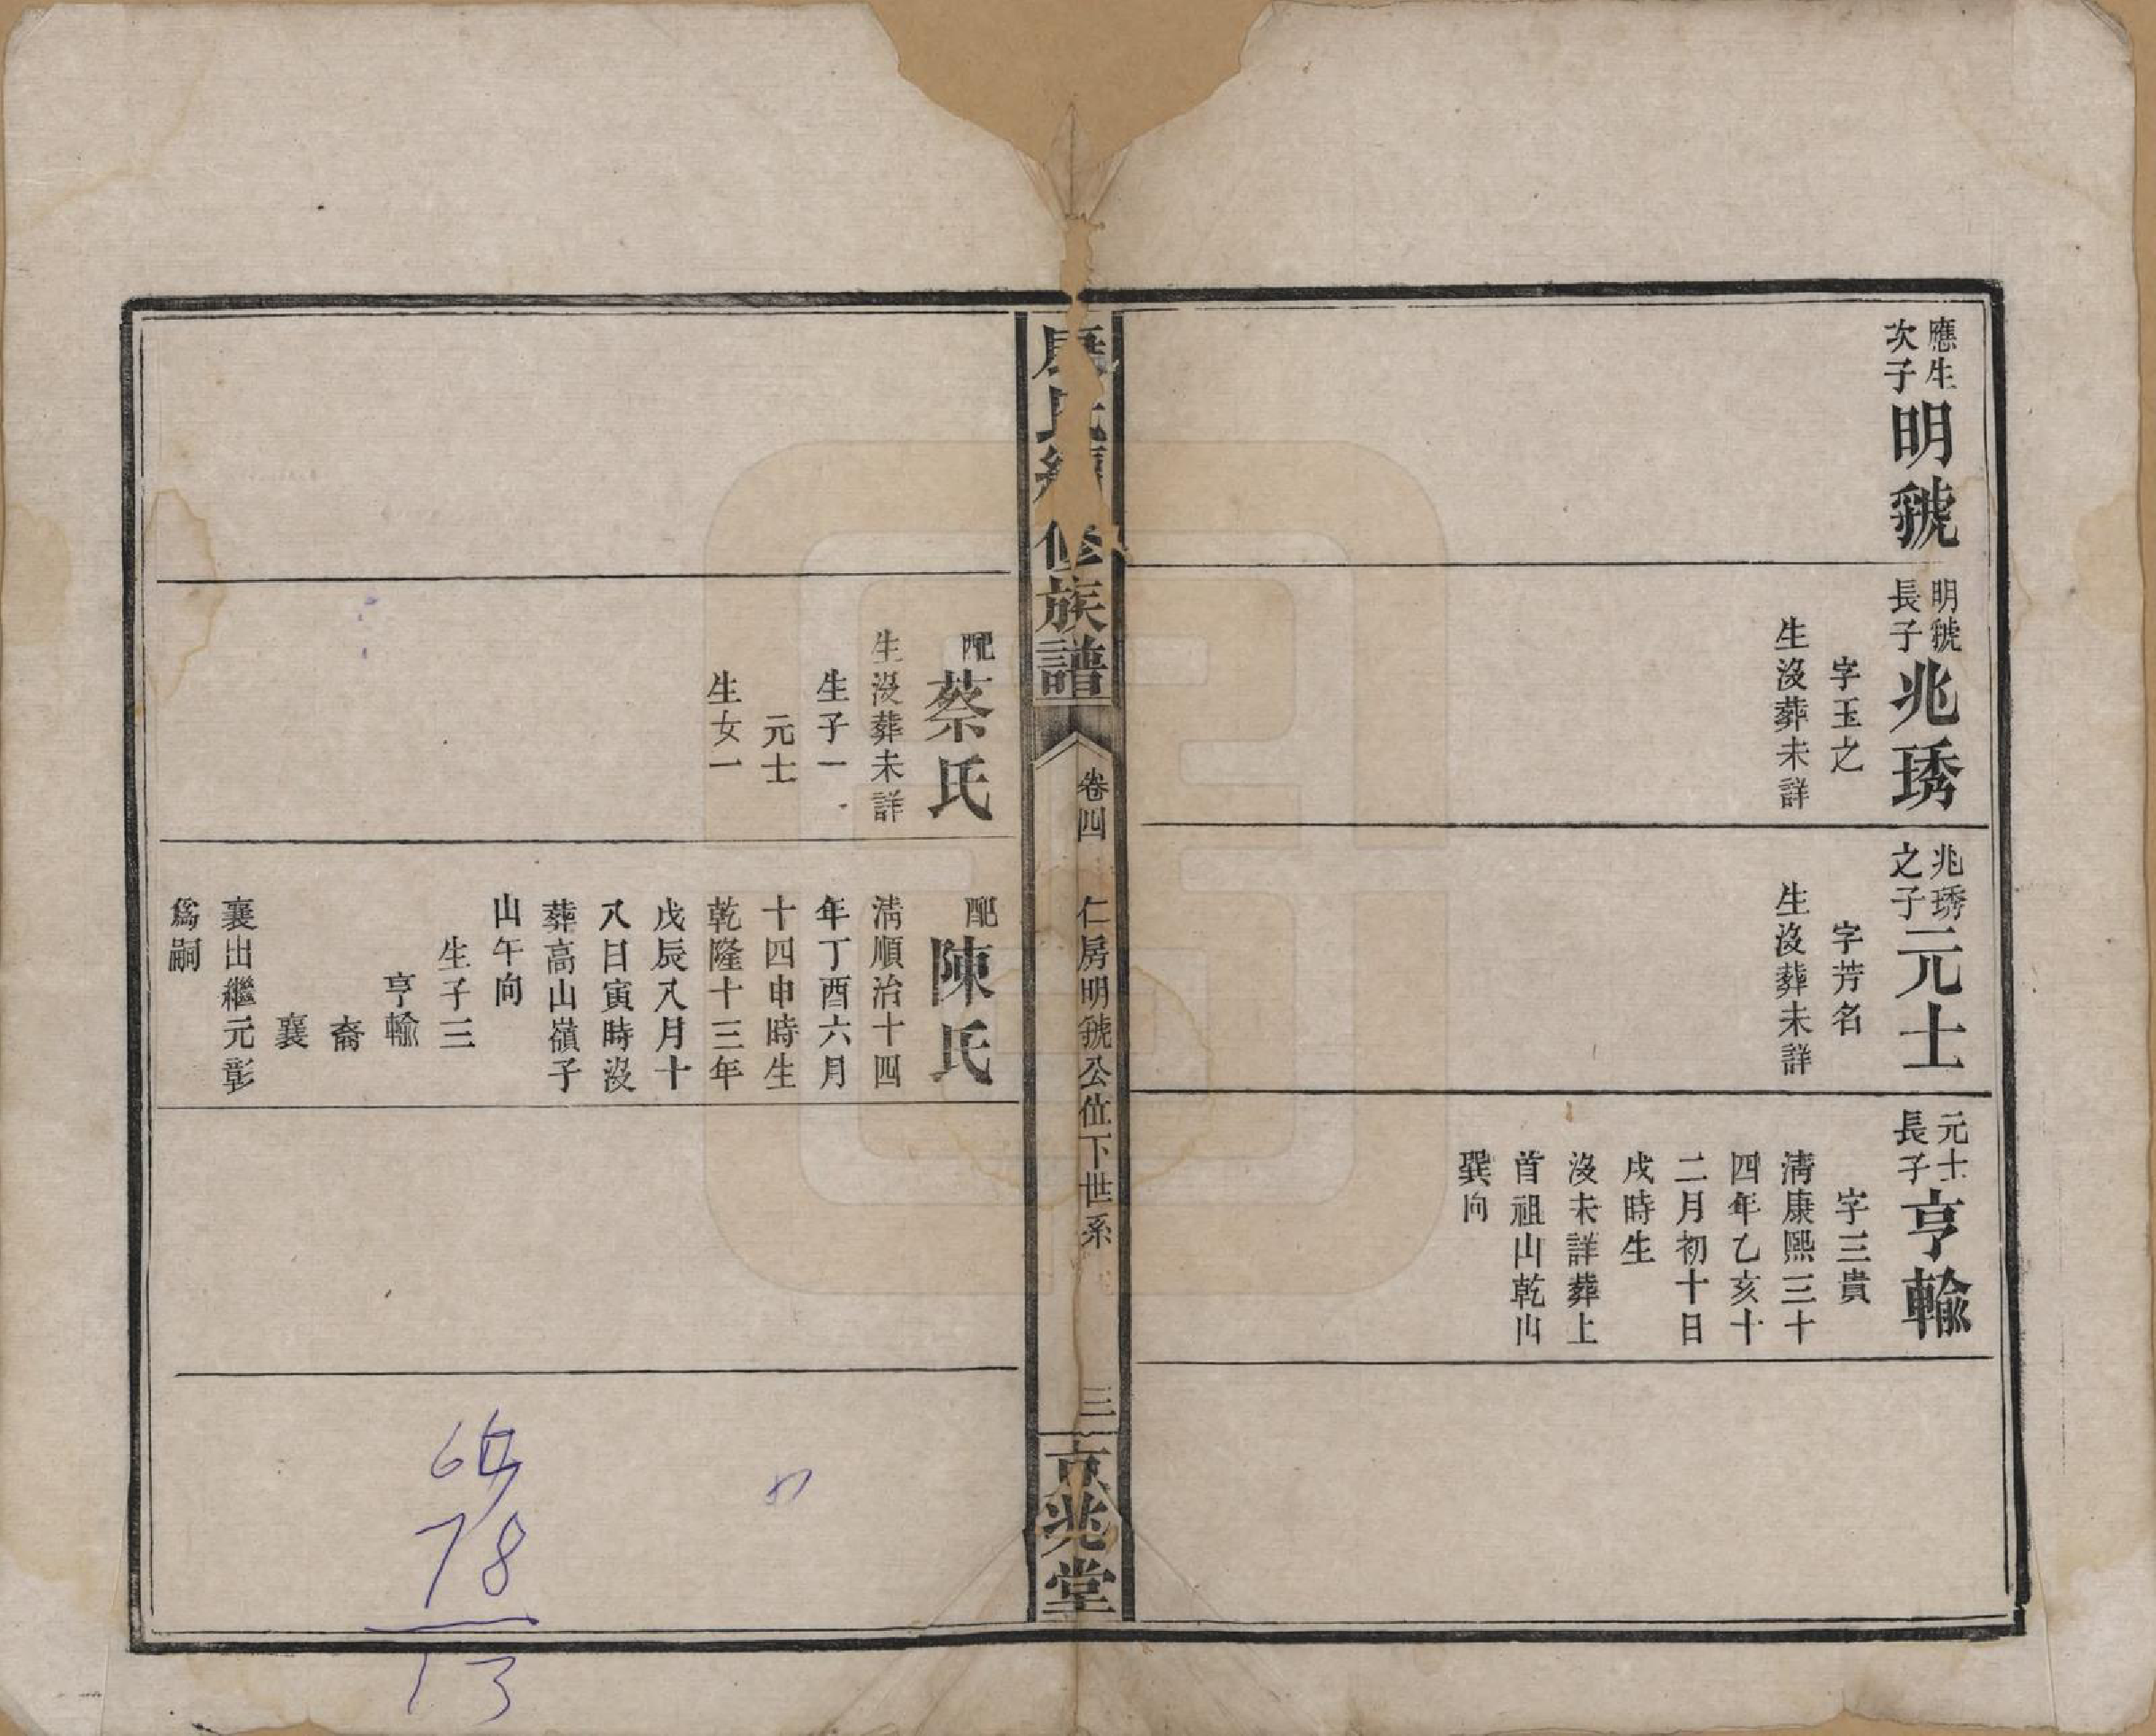 應生
次子
明虢
明虢
長子
兆琇
字玉之
生沒葬未詳
兆琇
之子
元士
字芳名
生沒葬未詳
元士
長子
亨輸
字三貴
清康熙三十
四年乙亥十
二月初十日
戌時生
沒未詳葬上
首祖山乾山
巽向
氏續修族譜
卷四
仁房明虢公位下世系
三
京兆堂
配
蔡氏
生沒葬未詳
生子一
元士
生女一
配
陳氏
清順治十四
年丁酉六月
十四申時生
乾隆十三年
戊辰八月十
八日寅時沒
葬高山嶺子
山午向
生子三
亨輸
裔
襄
襄出繼元彰
爲嗣
78
13